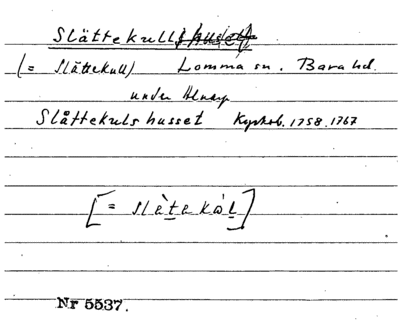 Slättekull
(= Slättekull) Lomma sn. Bara hd.
under Alnarp
Slåttekulshusset Kyrkob. 1758. 1767
[= slàtekàl]
Nr 5537.